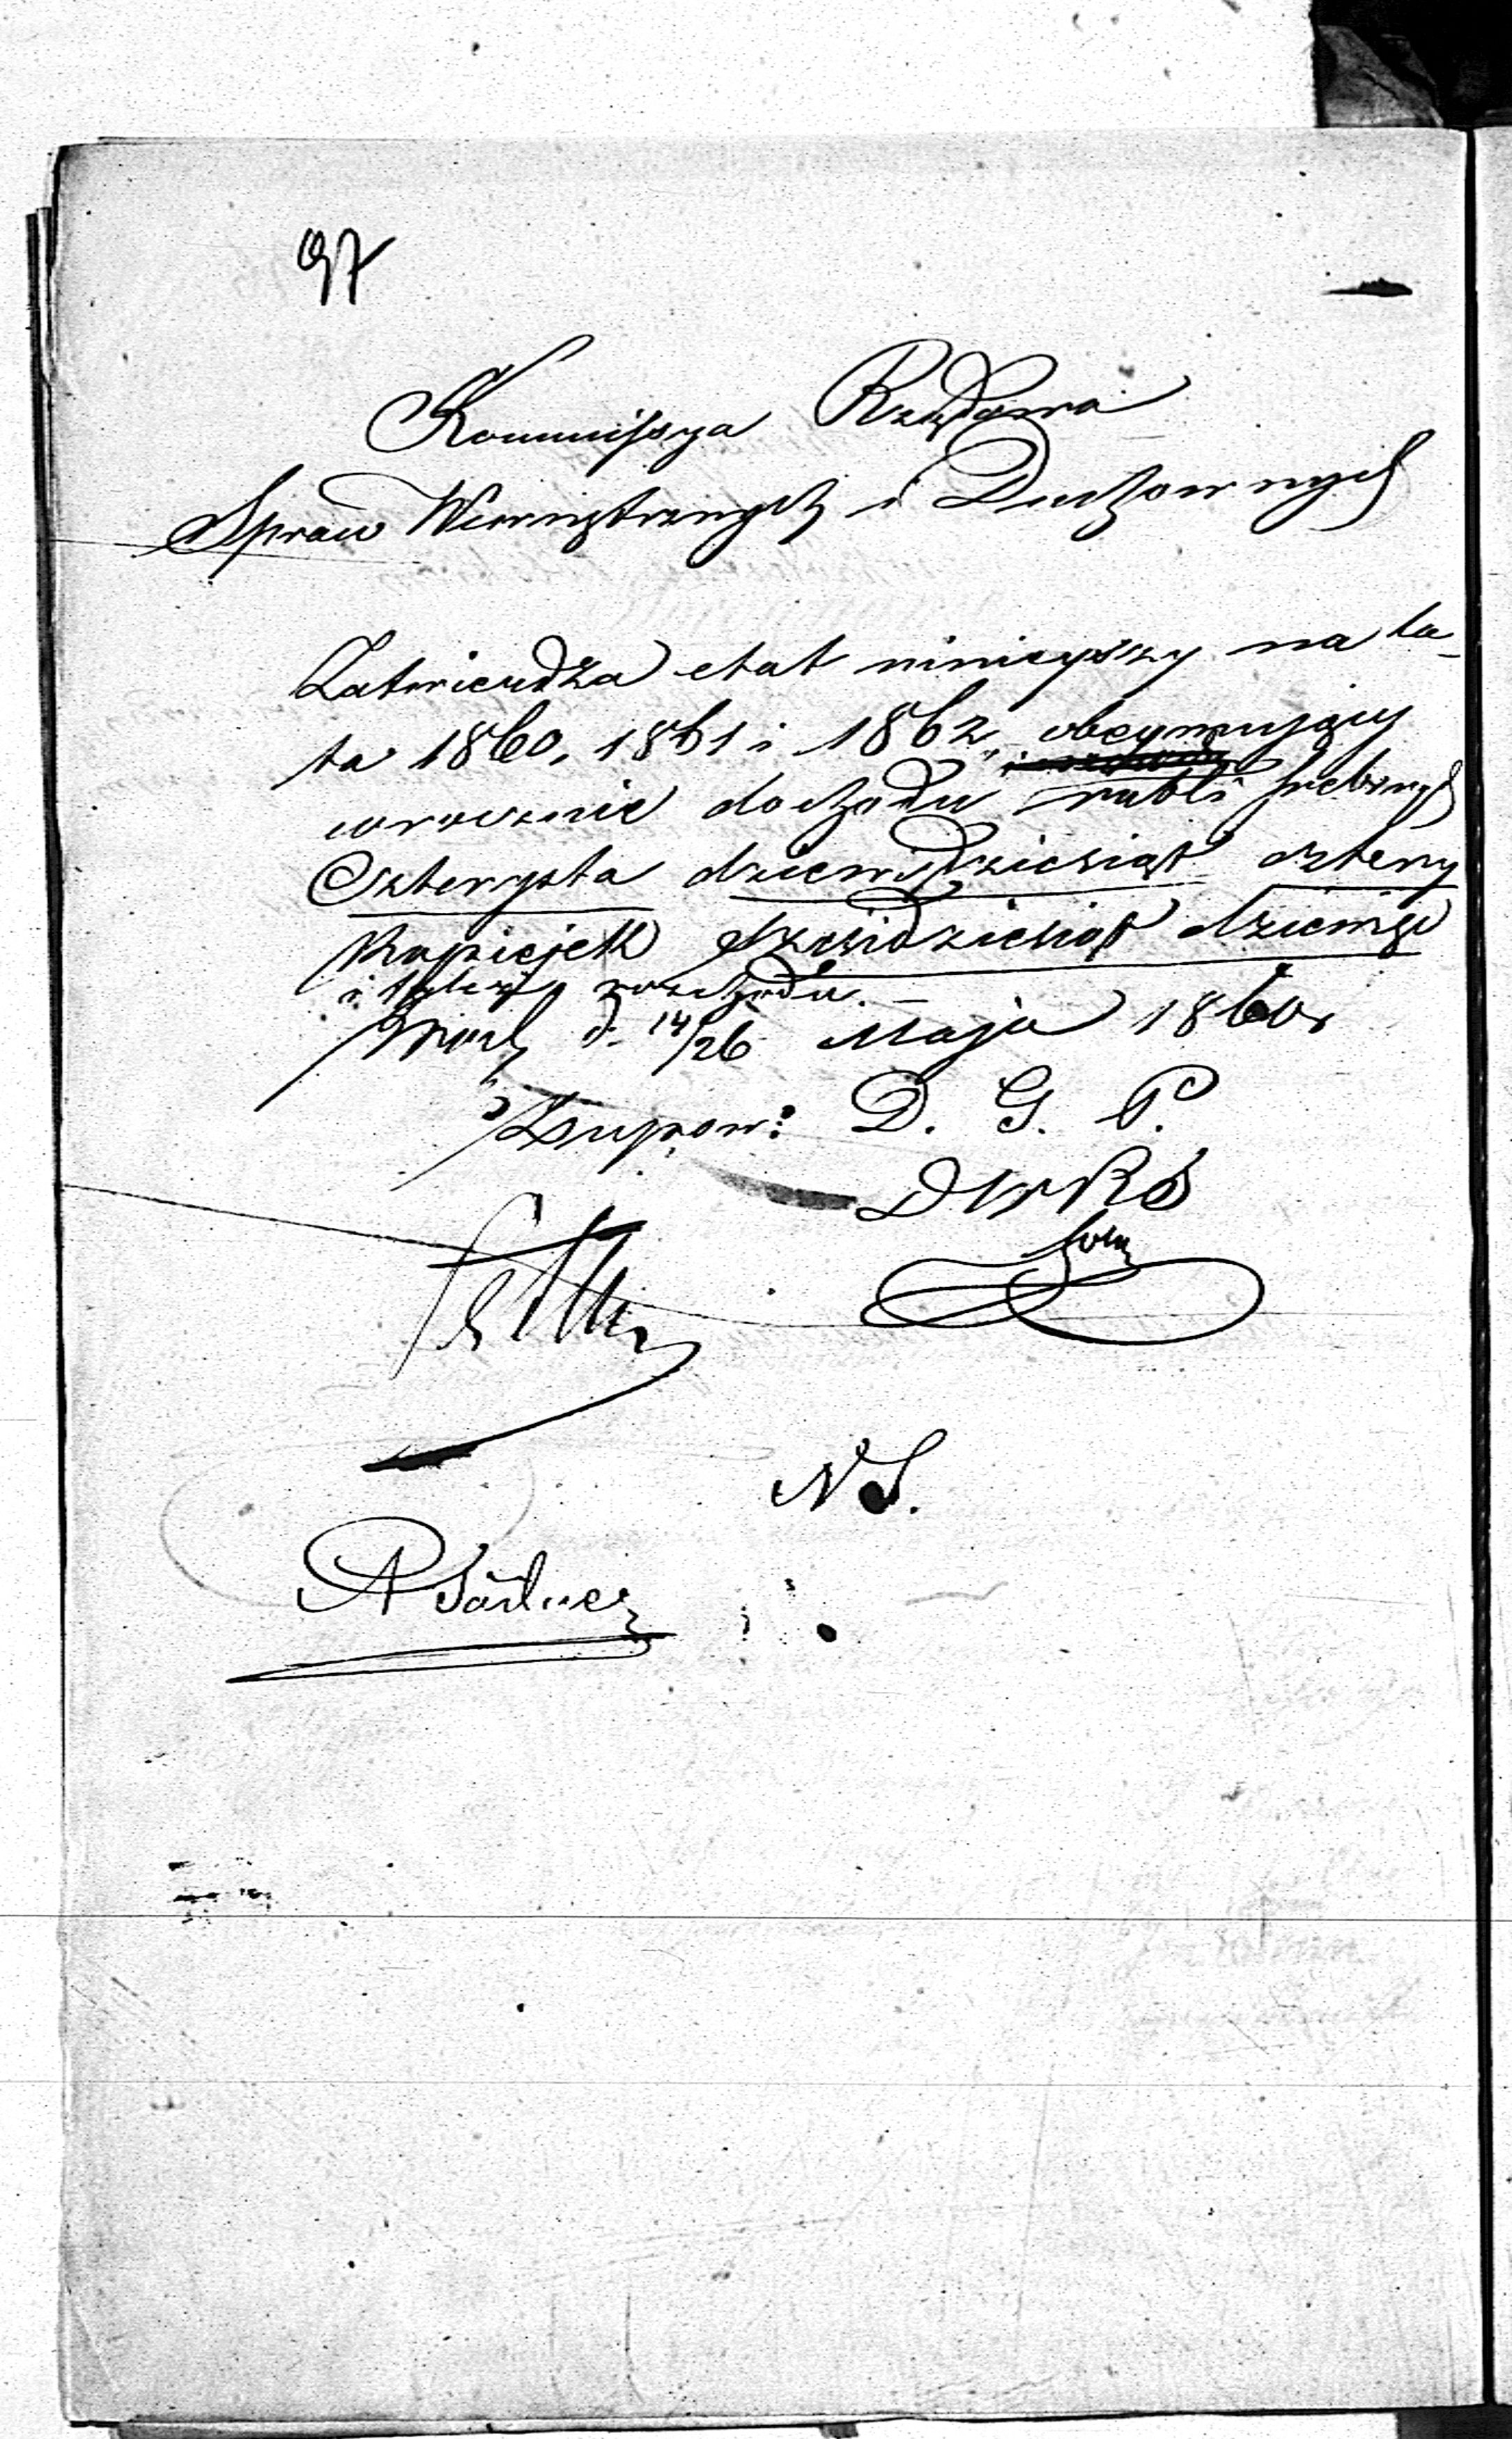 97
Kommissya Rządowa
Spraw Wewnętrznych i Duchownych
Zatwierdza etat ninieyszy na la-
ta 1860, 1861 i 1862, obeymujący
wrocznie dochodu rubli srebrnych
Czterysta dziewiędziesiąt cztery
Kopiejek dziewiędziesiąt dziewięć
i tyleż rozchodu. —
d. 14/26 Maja 1860r
Z upow: D. G. P.
DWRS
N S.